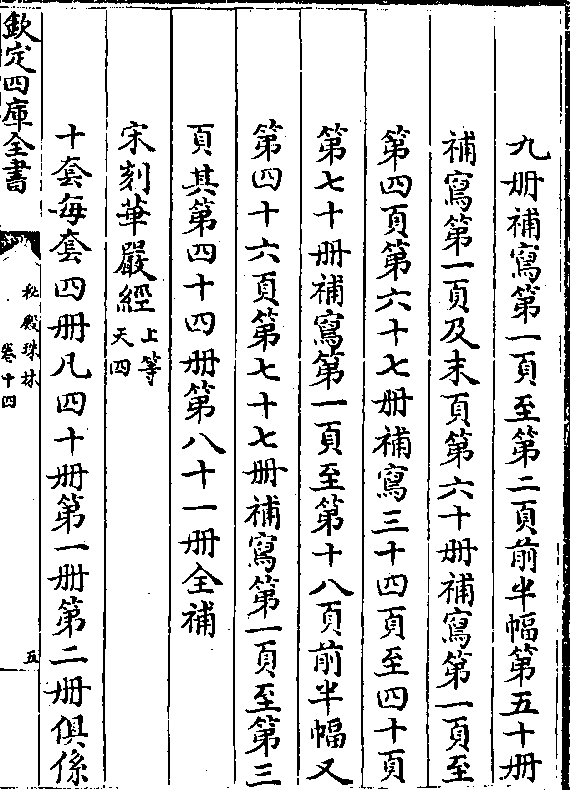 九册補寫第一頁至第二頁前半幅第五十册
補寫第一頁及末頁第六十册補寫第一頁至
第四頁第六十七册補寫三十四頁至四十頁
第七十册補寫第一頁至第十八頁前半幅又
第四十六頁第七十七册補寫第一頁至第三
頁其第四十四册第八十一册全補
宋刻華嚴經上等天四
十套每套四册凡四十册第一册第二册俱係
欽定四庫全書
秘殿珠林
卷十四
五